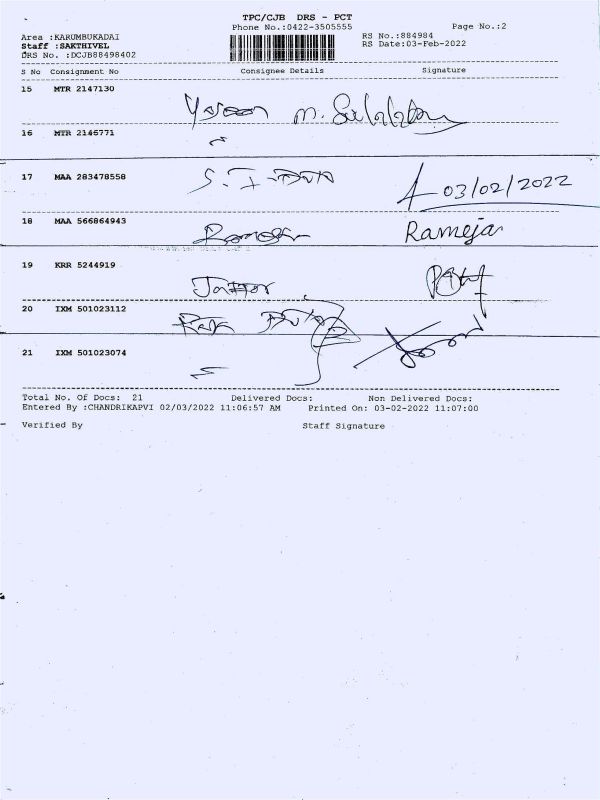 TPC/CJB DRS - PCT
Phone No.:0422-3505555
Page No.:2
Area :KARUMBUKADAI
RS No.:884984
Staff :SAKTHIVEL
RS Date:03-Feb-2022
DRS No. :DCJB88498402
S No Consignment No Consignee Details Signature
15 MTR 2147130
16 MTR 2146771
17 MAA 283478558 03/02/2022
18 MAA 566864943 Rameja
19 KRR 5244919
20 IXM 501023112
21 IXM 501023074
Total No. Of Docs: 21 Delivered Docs: Non Delivered Docs:
Entered By :CHANDRIKAPVI 02/03/2022 11:06:57 AM Printed On: 03-02-2022 11:07:00
Verified By Staff Signature